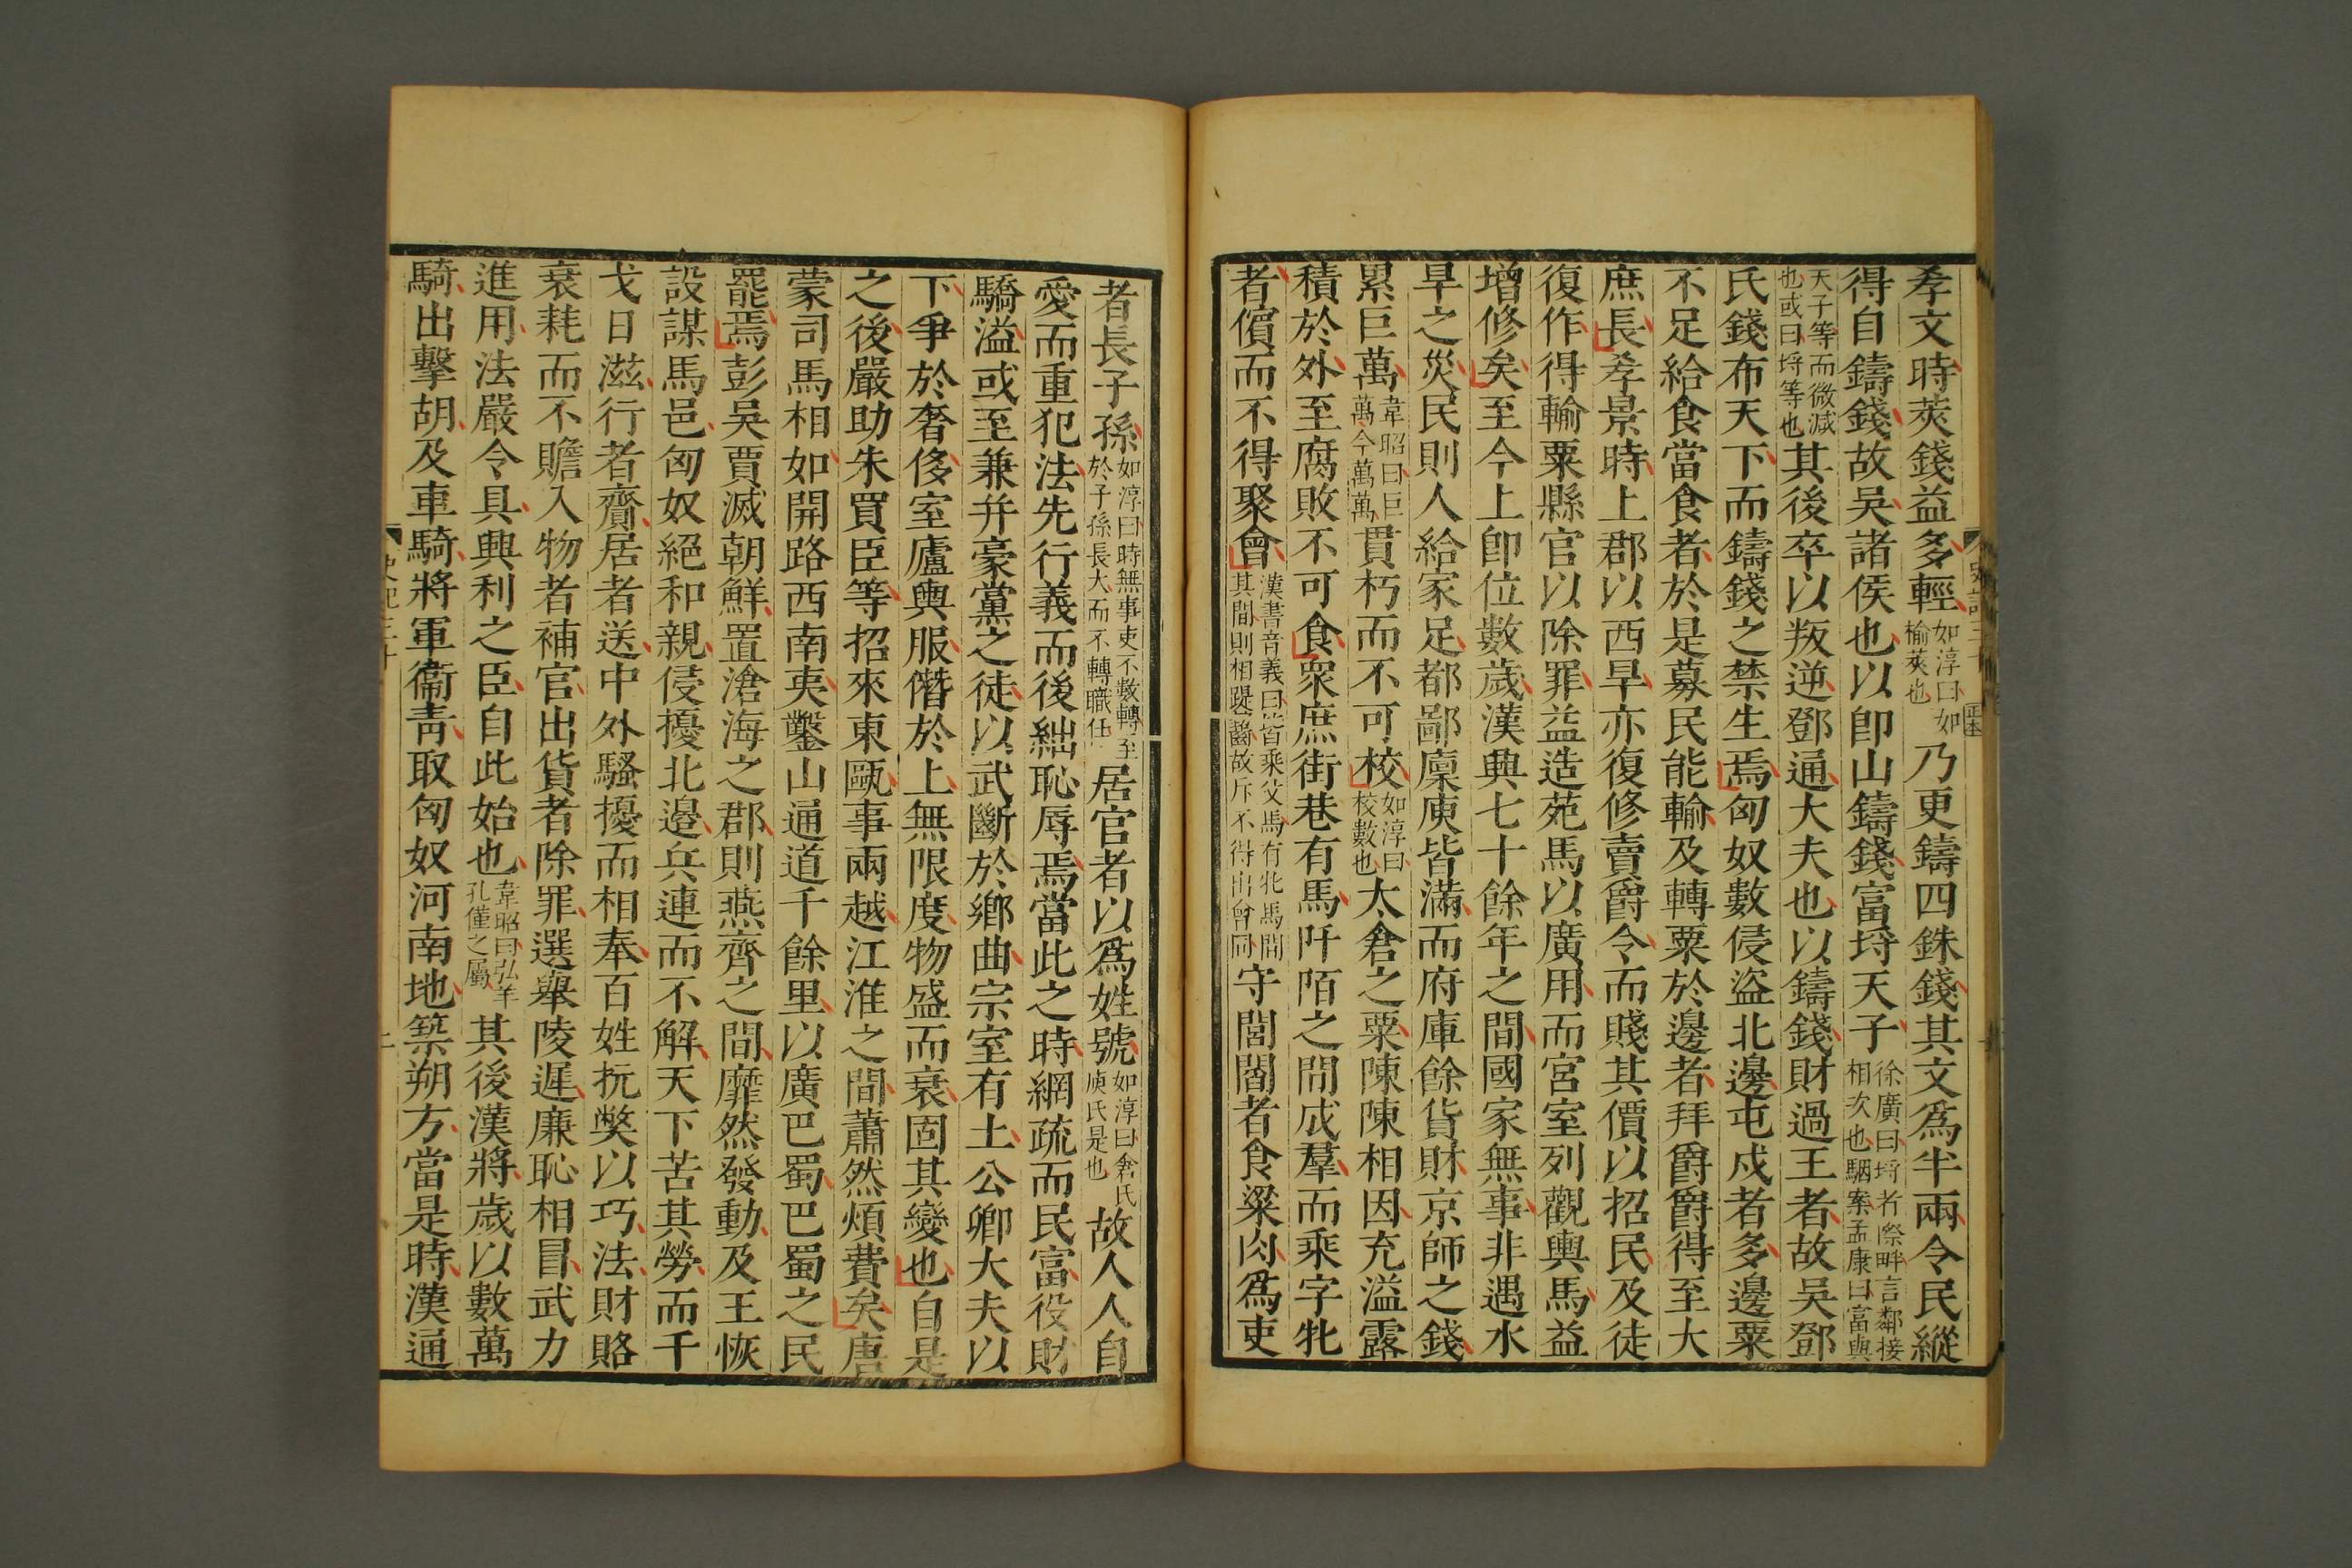 孝文時莢錢益多輕如淳曰如榆莢也乃更鑄四銖錢其文爲半兩令民縱
得自鑄錢故吳諸侯也以卽山鑄錢富埒天子徐廣曰埒者際畔言鄰接相次也駰案孟康曰富與
天子等而微減也或曰埒等也其後卒以叛逆鄧通大夫也以鑄錢財過王者故吳鄧
氏錢布天下而鑄錢之禁生焉匈奴數侵盜北邊屯戍者多邊粟
不足給食當食者於是募民能輸及轉粟於邊者拜爵爵得至大
庶長孝景時上郡以西旱亦復修賣爵令而賤其價以招民及徒
復作得輸粟縣官以除罪益造苑馬以廣用而宮室列觀輿馬益
增修矣至今上卽位數歲漢興七十餘年之間國家無事非遇水
旱之災民則人給家足都鄙廩庾皆滿而府庫餘貨財京師之錢
累巨萬韋昭曰巨萬今萬萬貫朽而不可校如淳曰校數也太倉之粟陳陳相因充溢露
積於外至腐敗不可食衆庶街巷有馬阡陌之間成羣而乘字牝
者儐而不得聚會漢書音義曰皆乘父馬有牝馬間其間則相踶齧故斥不得出會同守閭閻者食粱肉爲吏
者長子孫如淳曰時無事吏不數轉至於子孫長大而不轉職任居官者以爲姓號如淳曰倉氏庾氏是也故人人自
愛而重犯法先行義而後絀恥辱焉當此之時網疏而民富役財
驕溢或至兼并豪黨之徒以武斷於鄉曲宗室有土公卿大夫以
下爭於奢侈室廬輿服僭於上無限度物盛而衰固其變也自是
之後嚴助朱買臣等招來東甌事兩越江淮之間蕭然煩費矣唐
蒙司馬相如開路西南夷鑿山通道千餘里以廣巴蜀巴蜀之民
罷焉彭吳賈滅朝鮮置滄海之郡則燕齊之間靡然發動及王恢
設謀馬邑匈奴絕和親侵擾北邊兵連而不解天下苦其勞而干
戈日滋行者齎居者送中外騷擾而相奉百姓抏獘以巧法財賂
衰耗而不贍入物者補官出貨者除罪選舉陵遲廉恥相冒武力
進用法嚴令具興利之臣自此始也韋昭曰弘羊孔僅之屬其後漢將歲以數萬
騎出擊胡及車騎將軍衞靑取匈奴河南地築朔方當是時漢通